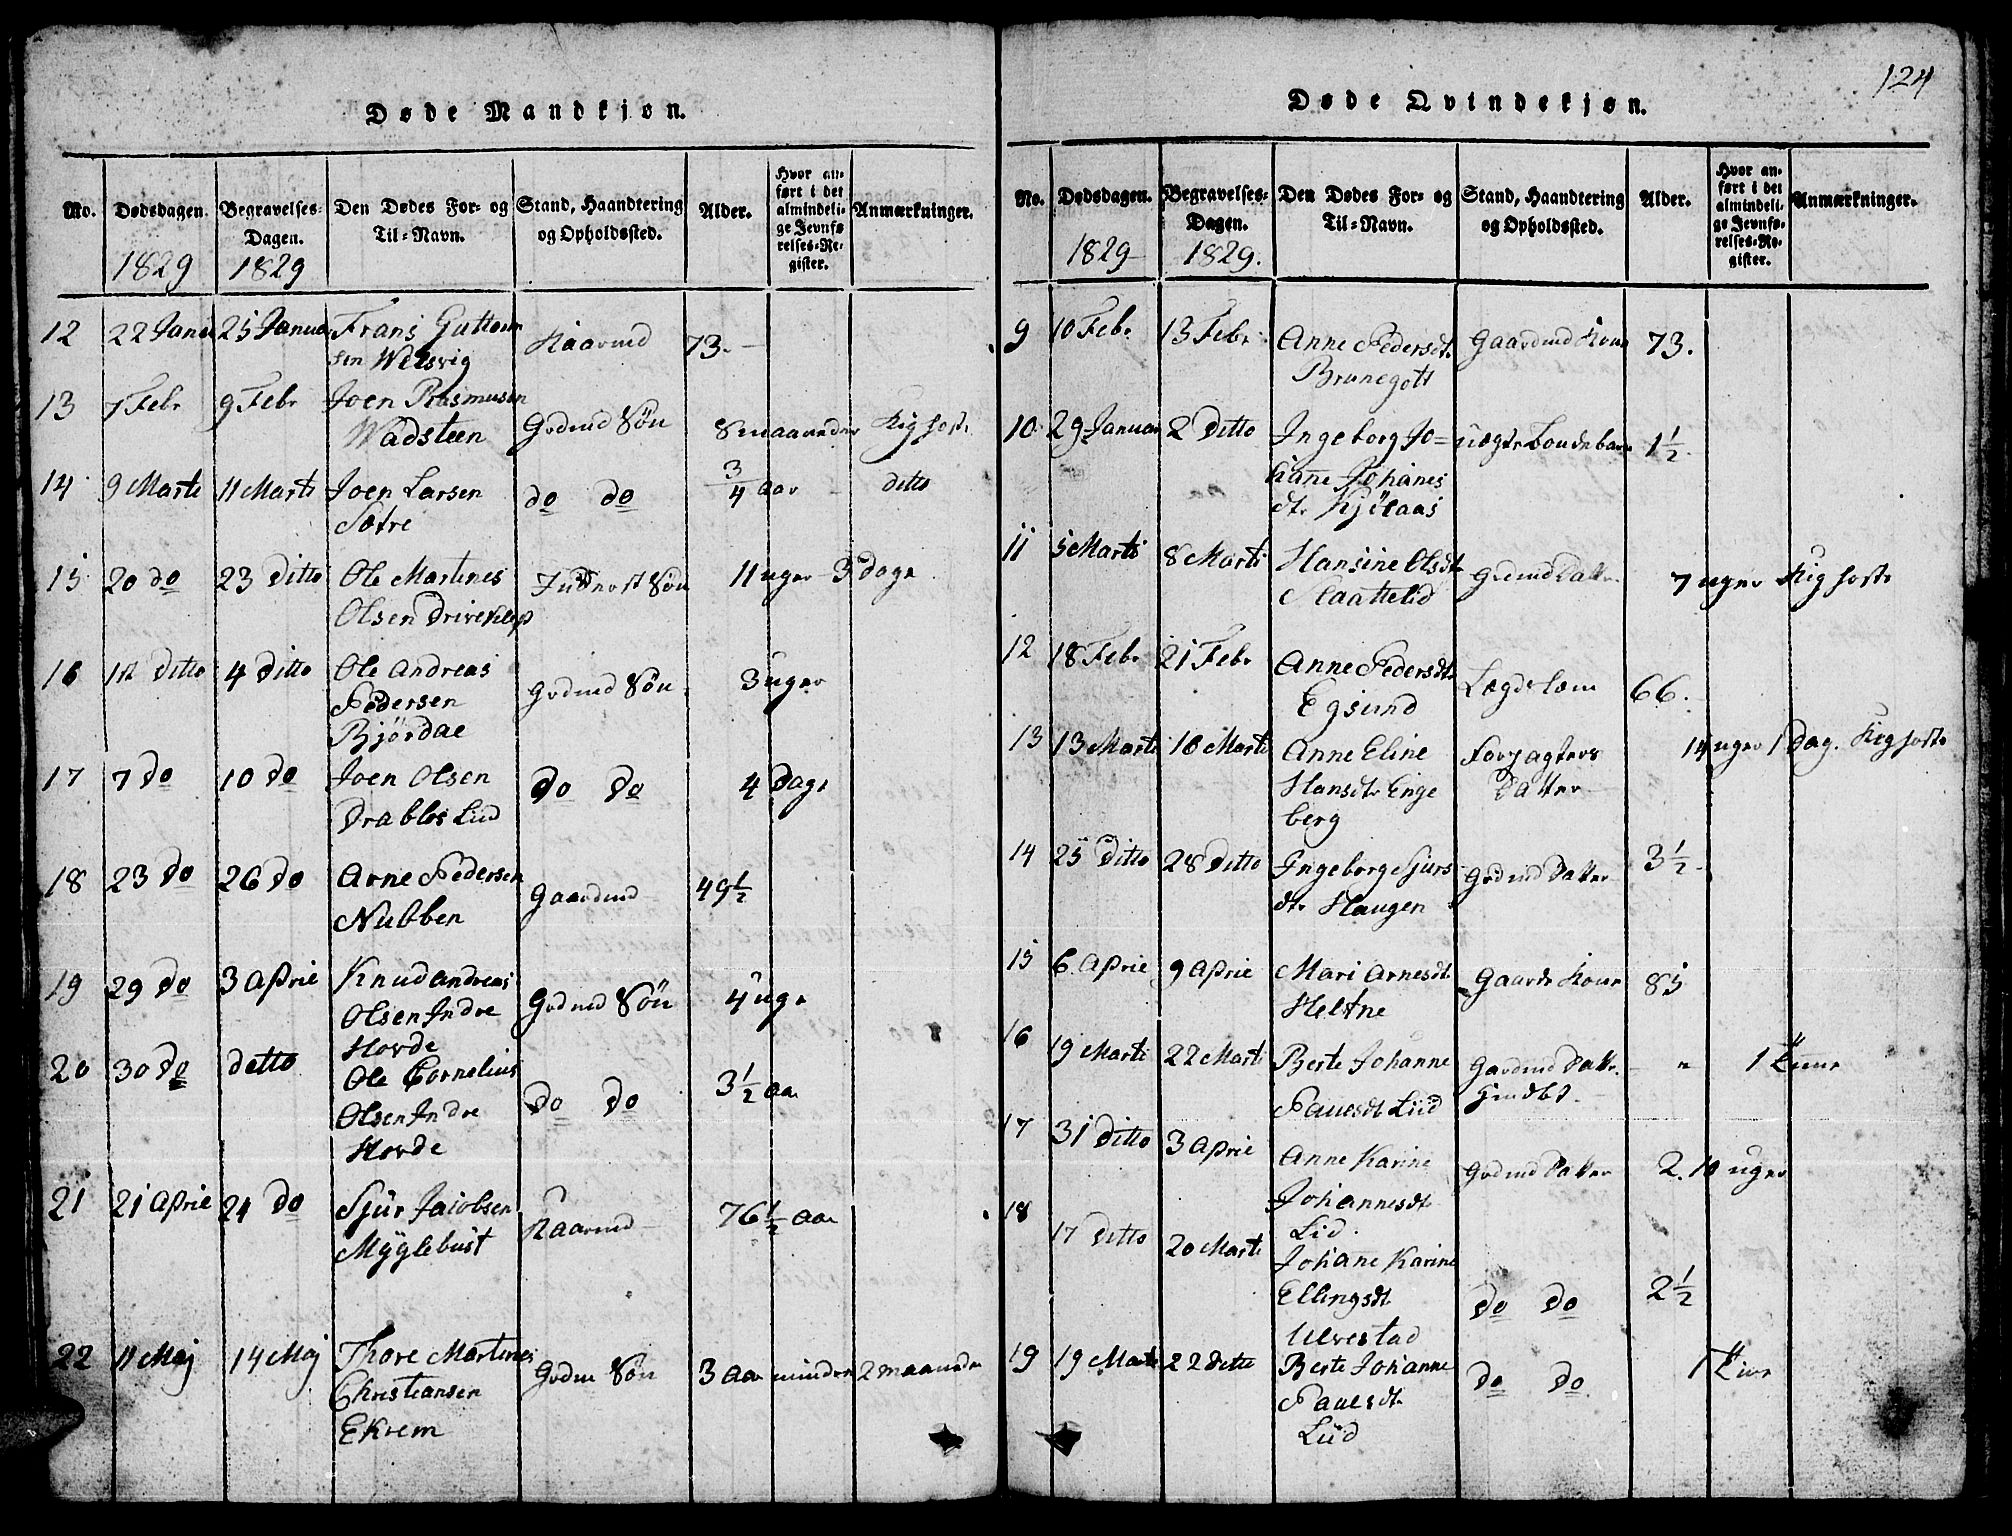 Døde Mandkjøn.
No. Dødsdagen. Begravelses-Dagen. Den Dødes For- og Til-Navn. Stand, Haandtering og Opholdssted. Alder. Hvor anført i det almindelige Jevnførelses-Register. Anmærkninger.
1829 1829
12 22 Janu 25 Januar Frans Guttorm
sen Welsvig Kaarmd 73.
13 7 Febr 9 Febr Joen Rasmusen
Wadsteen Grdmd Søn 8 maaneder Kighoste
14 9 Marts 11 Marts Joen Larsen
Sætre do do 3/4 aar ditto
15 20 do 23 Ditto Ole Martines
Olsen Driveklep Søn 11 uger 3 dage
16 1st Ditto 4 Ditto Ole Andreas
Pedersen
Bjørdal Grdmd Søn 3 uger
17 7 do 10 Do Joen Olsen
Drabløs Liid Do Do 4 Dage
18 23 Do 26 Do Arne Pedersen
Nubben Gaardmd 49 1/2
19 29 Do 3 April Knud Andreas
Olsen Indre
Hovde Grdmd Søn 4 uge
20 30 Do detto Ole Cornelius
Olsen Indre
Hovde Do Do 3 1/2 aar
21 21 April 24 Do Sjur Jacobsen
Myglebust Kaarmd 76 1/2 aar
22 11 Maj 14 Maj Thore Martines
Christiansen
Ekrem Grdm Søn 3 aar minder 2 maaneder
124
Døde Qvindekjøn.
No. Dødsdagen. Begravelses-Dagen. Den Dødes For- og Til-Navn. Stand, Haandtering og Opholdssted. Alder. Hvor anført i det almindelige Jevnførelses-Register. Anmærkninger.
1829 1829.
9 10 Febr 13 Febr Anne Pedersdt.
Brunegott Gaardmd Kone 73.
10 29 Januar 2 Ditto Ingeborg Jo=
hane Johanes
dtr Kjølaas uægte Bondebarn 1 1/2
11 5 Marts 8 Marts Hansine Olsdt
Slaattelid Grdmd Datter 7 uger Kighoste
12 18 Febr 21 Febr Anne Pedersdt.
Egsund Lægdslem 66.
13 13 Marts 16 Marts Anne Eline
Hansdtr Enge
berg Forpagters
Datter 14 uger 1 Dag. Kighoste
14 25 Ditto 28 Ditto Ingeborg Sjurs
dtr Haugen Grdmd Datter 3 1/2
15 6 April 9 April Mari Arnesdt.
Heltne Gaardm Kone 85
16 19 Marts 22 Marts Berte Johanne
Paulsdt Liid Gardmd Datter
hjmdbt. 1 Time
17 31 Ditto 3 April Anne Karine
Johannesdt
Lid. Grdmd Datter 2. 10 uger
18 17 Ditto 20 Marts Johane Karine
Ellingsdt
Ulvestad Do Do 2 1/2
19 19 Marts 22 Ditto Berte Johanne
Paulsdt.
Liid Do Do. 1 Time